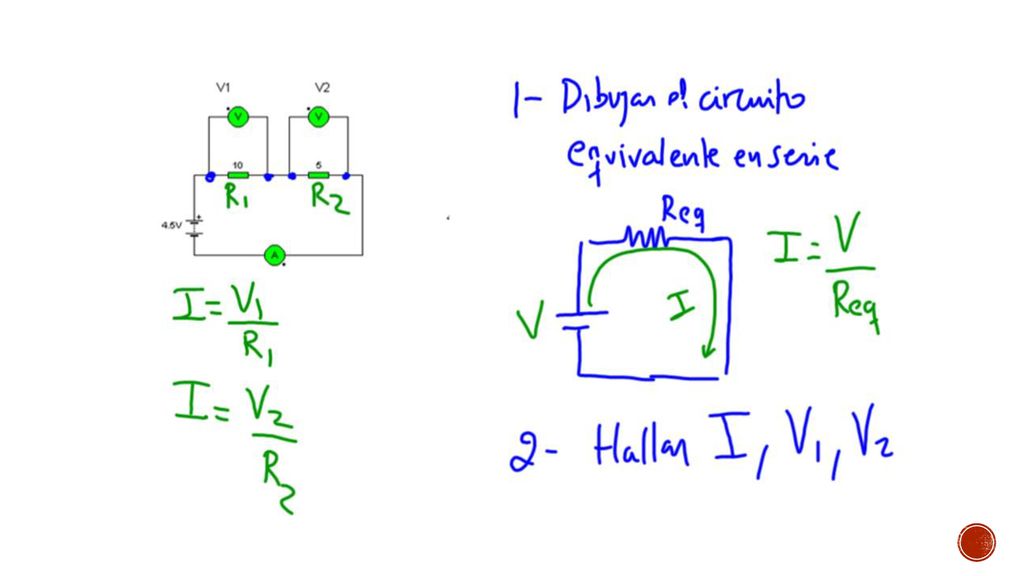 V1 V2
V V
10 5
R1 R2
4.5V
+
A
I = V1 / R1
I = V2 / R2
1- Dibujar el circuito
equivalente en serie
Req
V
I
I = V / Req
2- Hallar I, V1, V2